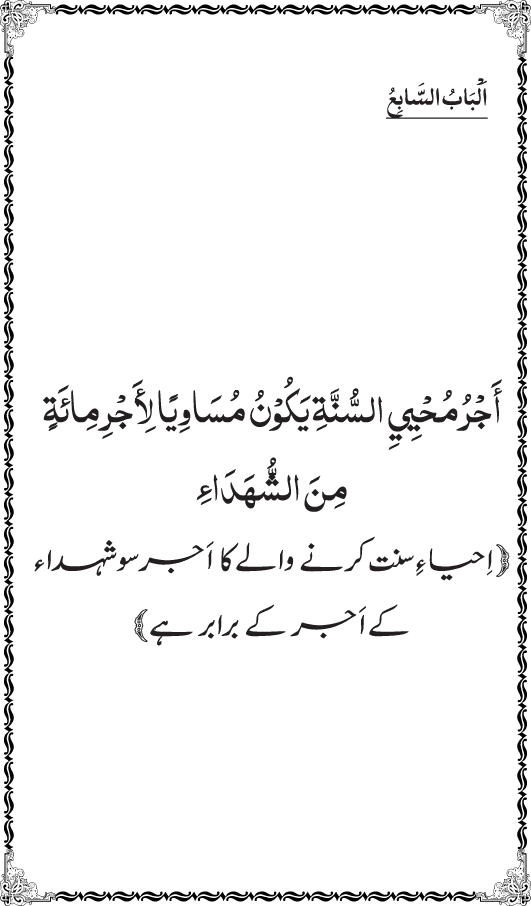 اَلْبَابُ السَّابِعُ
أَجْرُ مُحْيِيِ السُّنَّةِ يَكُوْنُ مُسَاوِيًا لِأَجْرِ مِائَةٍ
مِنَ الشُّهَدَاءِ
﴿اِحیاءِ سنت کرنے والے کا اَجر سو شہداء
کے اَجر کے برابر ہے﴾